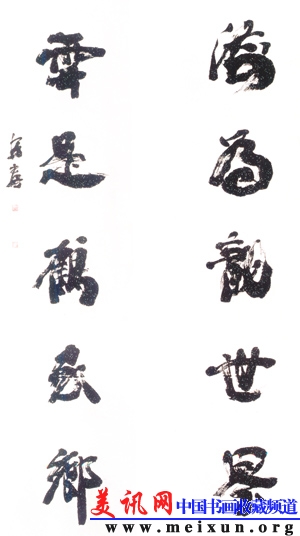 海為龍世界
雲是鶴家鄉
美讯网 中国书画收藏频道
www.meixun.org